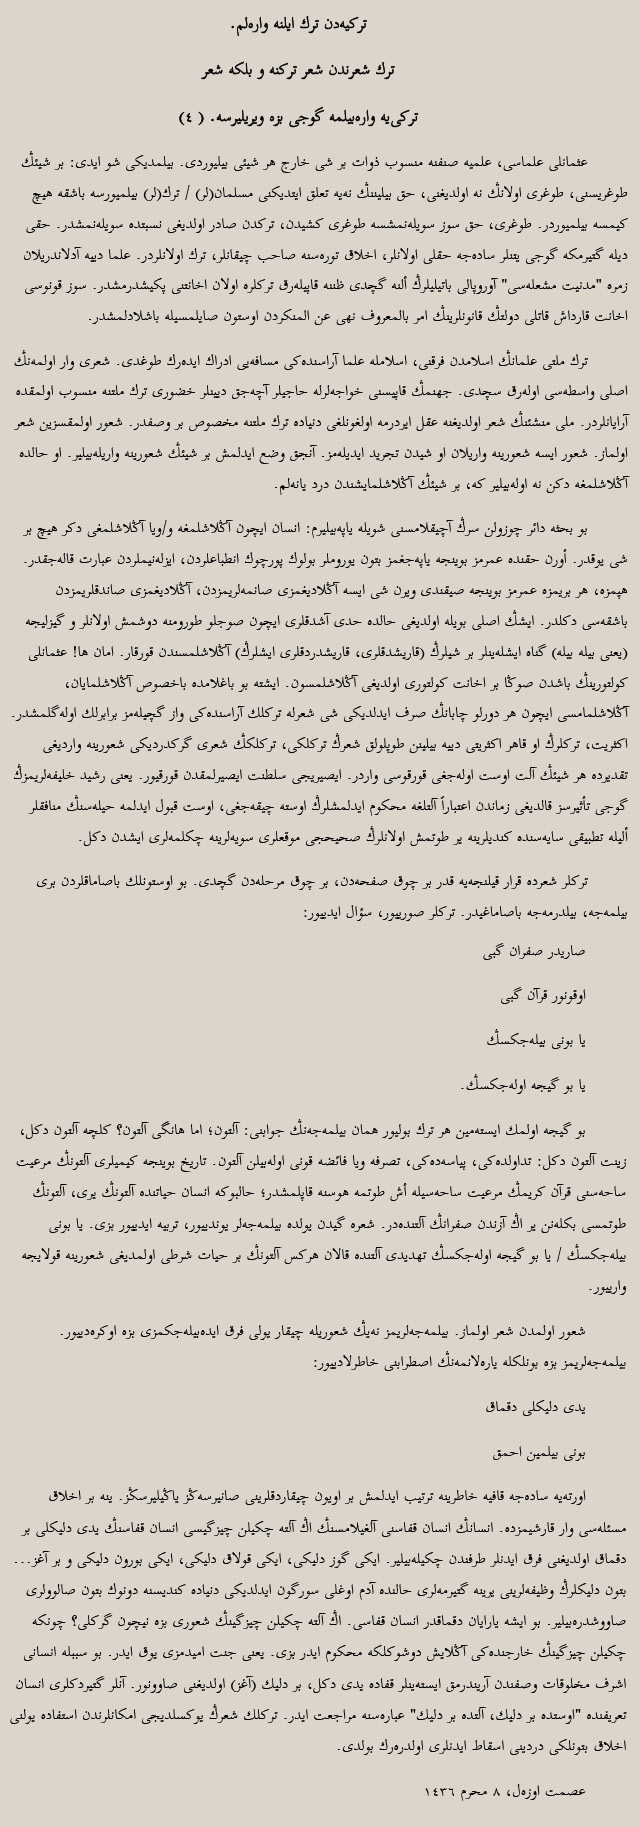 تركیه‌دن ترك ایلنه واره‌لم.
ترك شعرندن شعر تركنه و بلكه شعر
تركی‌یه واره‌بیلمه گوجی بزه ویریلیرسه. ( ٤)
عثمانلی علماسی، علمیه صنفنه منسوب ذوات بر شی خارج هر شیئی بیلیوردی. بیلمدیكی شو ایدی: بر شیئڭ
طوغریسنی، طوغری اولانڭ نه اولدیغنی، حق بیلیننڭ نه‌یه تعلق ایتدیكنی مسلمان(لر) / ترك(لر) بیلمیورسه باشقه هیچ
كیمسه بیلمیوردر. طوغری، حق سوز سویله‌نمشسه طوغری كشیدن، تركدن صادر اولدیغی نسبتده سویله‌نمشدر. حقی
دیله گتیرمكه گوجی یتنلر ساده‌جه حقلی اولانلر، اخلاق توره‌سنه صاحب چیقانلر، ترك اولانلردر. علما دییه آدلاندریلان
زمره "مدنیت مشعله‌سی" آوروپالی باتیلیلرڭ ألنه گچدی ظننه قاپیله‌رق تركلره اولان اخانتنی پكیشدرمشدر. سوز قونوسی
اخانت قارداش قاتلی دولتڭ قانونلرینڭ امر بالمعروف نهی عن المنكردن اوستون صایلمسیله باشلادلمشدر.
ترك ملتی علمانڭ اسلامدن فرقنی، اسلامله علما آراسنده‌كی مسافه‌یی ادراك ایده‌رك طوغدی. شعری وار اولمه‌نڭ
اصلی واسطه‌سی اوله‌رق سچدی. جهنمڭ قاپیسنی خواجه‌لرله حاجیلر آچه‌جق دیینلر خضوری ترك ملتنه منسوب اولمقده
آرایانلردر. ملی منشئنڭ شعر اولدیغنه عقل ایردرمه اولغونلغی دنیاده ترك ملتنه مخصوص بر وصفدر. شعور اولمقسزین شعر
اولماز. شعور ایسه شعورینه واریلان او شیدن تجرید ایدیله‌مز. آنجق وضع ایدلمش بر شیئڭ شعورینه واریله‌بیلیر. او حالده
آڭلاشلمغه دكن نه اوله‌بیلیر كه، بر شیئڭ آڭلاشلمایشندن درد یانه‌لم.
بو بحثه دائر چوزولن سرڭ آچیقلامسنی شویله یاپه‌بیلیرم: انسان ایچون آڭلاشلمغه و/ویا آڭلاشلمغی دكر هیچ بر
شی یوقدر. أورن حقنده عمرمز بوینجه یاپه‌جغمز بتون یوروملر بولوك پورچوك انطباعلردن، ایزله‌نیملردن عبارت قاله‌جقدر.
هپمزه، هر بریمزه عمرمز بوینجه صیقندی ویرن شی ایسه آڭلادیغمزی صانمه‌لریمزدن، آڭلادیغمزی صاندقلریمزدن
باشقه‌سی دكلدر. ایشڭ اصلی بویله اولدیغی حالده حدی آشدقلری ایچون صوجلو طورومنه دوشمش اولانلر و گیزلیجه
(یعنی بیله بیله) گناه ایشله‌ینلر بر شیلرڭ (قاریشدقلری، قاریشدردقلری ایشلرڭ) آڭلاشلمسندن قورقار. امان ها! عثمانلی
كولتورینڭ باشدن صوڭا بر اخانت كولتوری اولدیغی آڭلاشلمسون. ایشته بو باغلامده باخصوص آڭلاشلمایان،
آڭلاشلمامسی ایچون هر دورلو چابانڭ صرف ایدلدیكی شی شعرله تركلك آراسنده‌كی واز گچیله‌مز برابرلك اوله‌گلمشدر.
اكثریت، تركلرڭ او قاهر اكثریتی دییه بیلینن طوپلولق شعرڭ تركلكی، تركلكڭ شعری گركدردیكی شعورینه واردیغی
تقدیرده هر شیئڭ آلت اوست اوله‌جغی قورقوسی واردر. ایصیریجی سلطنت ایصیرلمقدن قورقیور. یعنی رشید خلیفه‌لریمزڭ
گوجی تأثیرسز قالدیغی زماندن اعتباراً آلتلغه محكوم ایدلمشلرڭ اوسته چیقه‌جغی، اوست قبول ایدلمه حیله‌سنڭ منافقلر
ألیله تطبیقی سایه‌سنده كندیلرینه یر طوتمش اولانلرڭ صحیحجی موقعلری سویه‌لرینه چكلمه‌لری ایشدن دكل.
تركلر شعرده قرار قیلنجه‌یه قدر بر چوق صفحه‌دن، بر چوق مرحله‌دن گچدی. بو اوستونلك باصاماقلردن بری
بیلمه‌جه، بیلدرمه‌جه باصاماغیدر. تركلر صورییور، سؤال ایدییور:
صاریدر صفران گبی
اوقونور قرآن گبی
یا بونی بیله‌جكسڭ
یا بو گیجه اوله‌جكسڭ.
بو گیجه اولمك ایسته‌مین هر ترك بولیور همان بیلمه‌جه‌نڭ جوابنی: آلتون؛ اما هانگی آلتون؟ كلچه آلتون دكل،
زینت آلتون دكل: تداولده‌كی، پیاسه‌ده‌كی، تصرفه ویا فائضه قونی اوله‌بیلن آلتون. تاریخ بوینجه كیمیلری آلتونڭ مرعیت
ساحه‌سنی قرآن كریمڭ مرعیت ساحه‌سیله أش طوتمه هوسنه قاپلمشدر؛ حالبوكه انسان حیاتنده آلتونڭ یری، آلتونڭ
طوتمسی بكله‌نن یر اڭ آزندن صفرانڭ آلتنده‌در. شعره گیدن یولده بیلمه‌جه‌لر یوندییور، تربیه ایدییور بزی. یا بونی
بیله‌جكسڭ / یا بو گیجه اوله‌جكسڭ تهدیدی آلتنده قالان هركس آلتونڭ بر حیات شرطی اولمدیغی شعورینه قولایجه
وارییور.
شعور اولمدن شعر اولماز. بیلمه‌جه‌لریمز نه‌یڭ شعوریله چیقار یولی فرق ایده‌بیله‌جكمزی بزه اوكره‌دییور.
بیلمه‌جه‌لریمز بزه بونلكله یاره‌لانمه‌نڭ اصطرابنی خاطرلادییور:
یدی دلیكلی دقماق
بونی بیلمین احمق
اورته‌یه ساده‌جه قافیه خاطرینه ترتیب ایدلمش بر اویون چیقاردقلرینی صانیرسه‌ڭز یاڭیلیرسڭز. ینه بر اخلاق
مسئله‌سی وار قارشیمزده. انسانڭ انسان قفاسنی آلغیلامسنڭ اڭ آلته چكیلن چیزگیسی انسان قفاسنڭ یدی دلیكلی بر
دقماق اولدیغنی فرق ایدنلر طرفندن چكیله‌بیلیر. ایكی گوز دلیكی، ایكی قولاق دلیكی، ایكی بورون دلیكی و بر آغز...
بتون دلیكلرڭ وظیفه‌لرینی یرینه گتیرمه‌لری حالنده آدم اوغلی سورگون ایدلدیكی دنیاده كندیسنه دونوك بتون صالوولری
صاووشدره‌بیلیر. بو ایشه یارایان دقماقدر انسان قفاسی. اڭ آلته چكیلن چیزگینڭ شعوری بزه نیچون گركلی؟ چونكه
چكیلن چیزگینڭ خارجنده‌كی آڭلایش دوشوكلكه محكوم ایدر بزی. یعنی جنت امیدمزی یوق ایدر. بو سببله انسانی
اشرف مخلوقات وصفندن آریندرمق ایسته‌ینلر قفاده یدی دكل، بر دلیك (آغز) اولدیغنی صاوونور. آنلر گتیردكلری انسان
تعریفنده "اوستده بر دلیك، آلتده بر دلیك" عباره‌سنه مراجعت ایدر. تركلك شعرڭ یوكسلدیجی امكانلرندن استفاده یولنی
اخلاق بتونلكی دردینی اسقاط ایدنلری اولدره‌رك بولدی.
عصمت اوزه‌ل، ٨ محرم ١٤٣٦